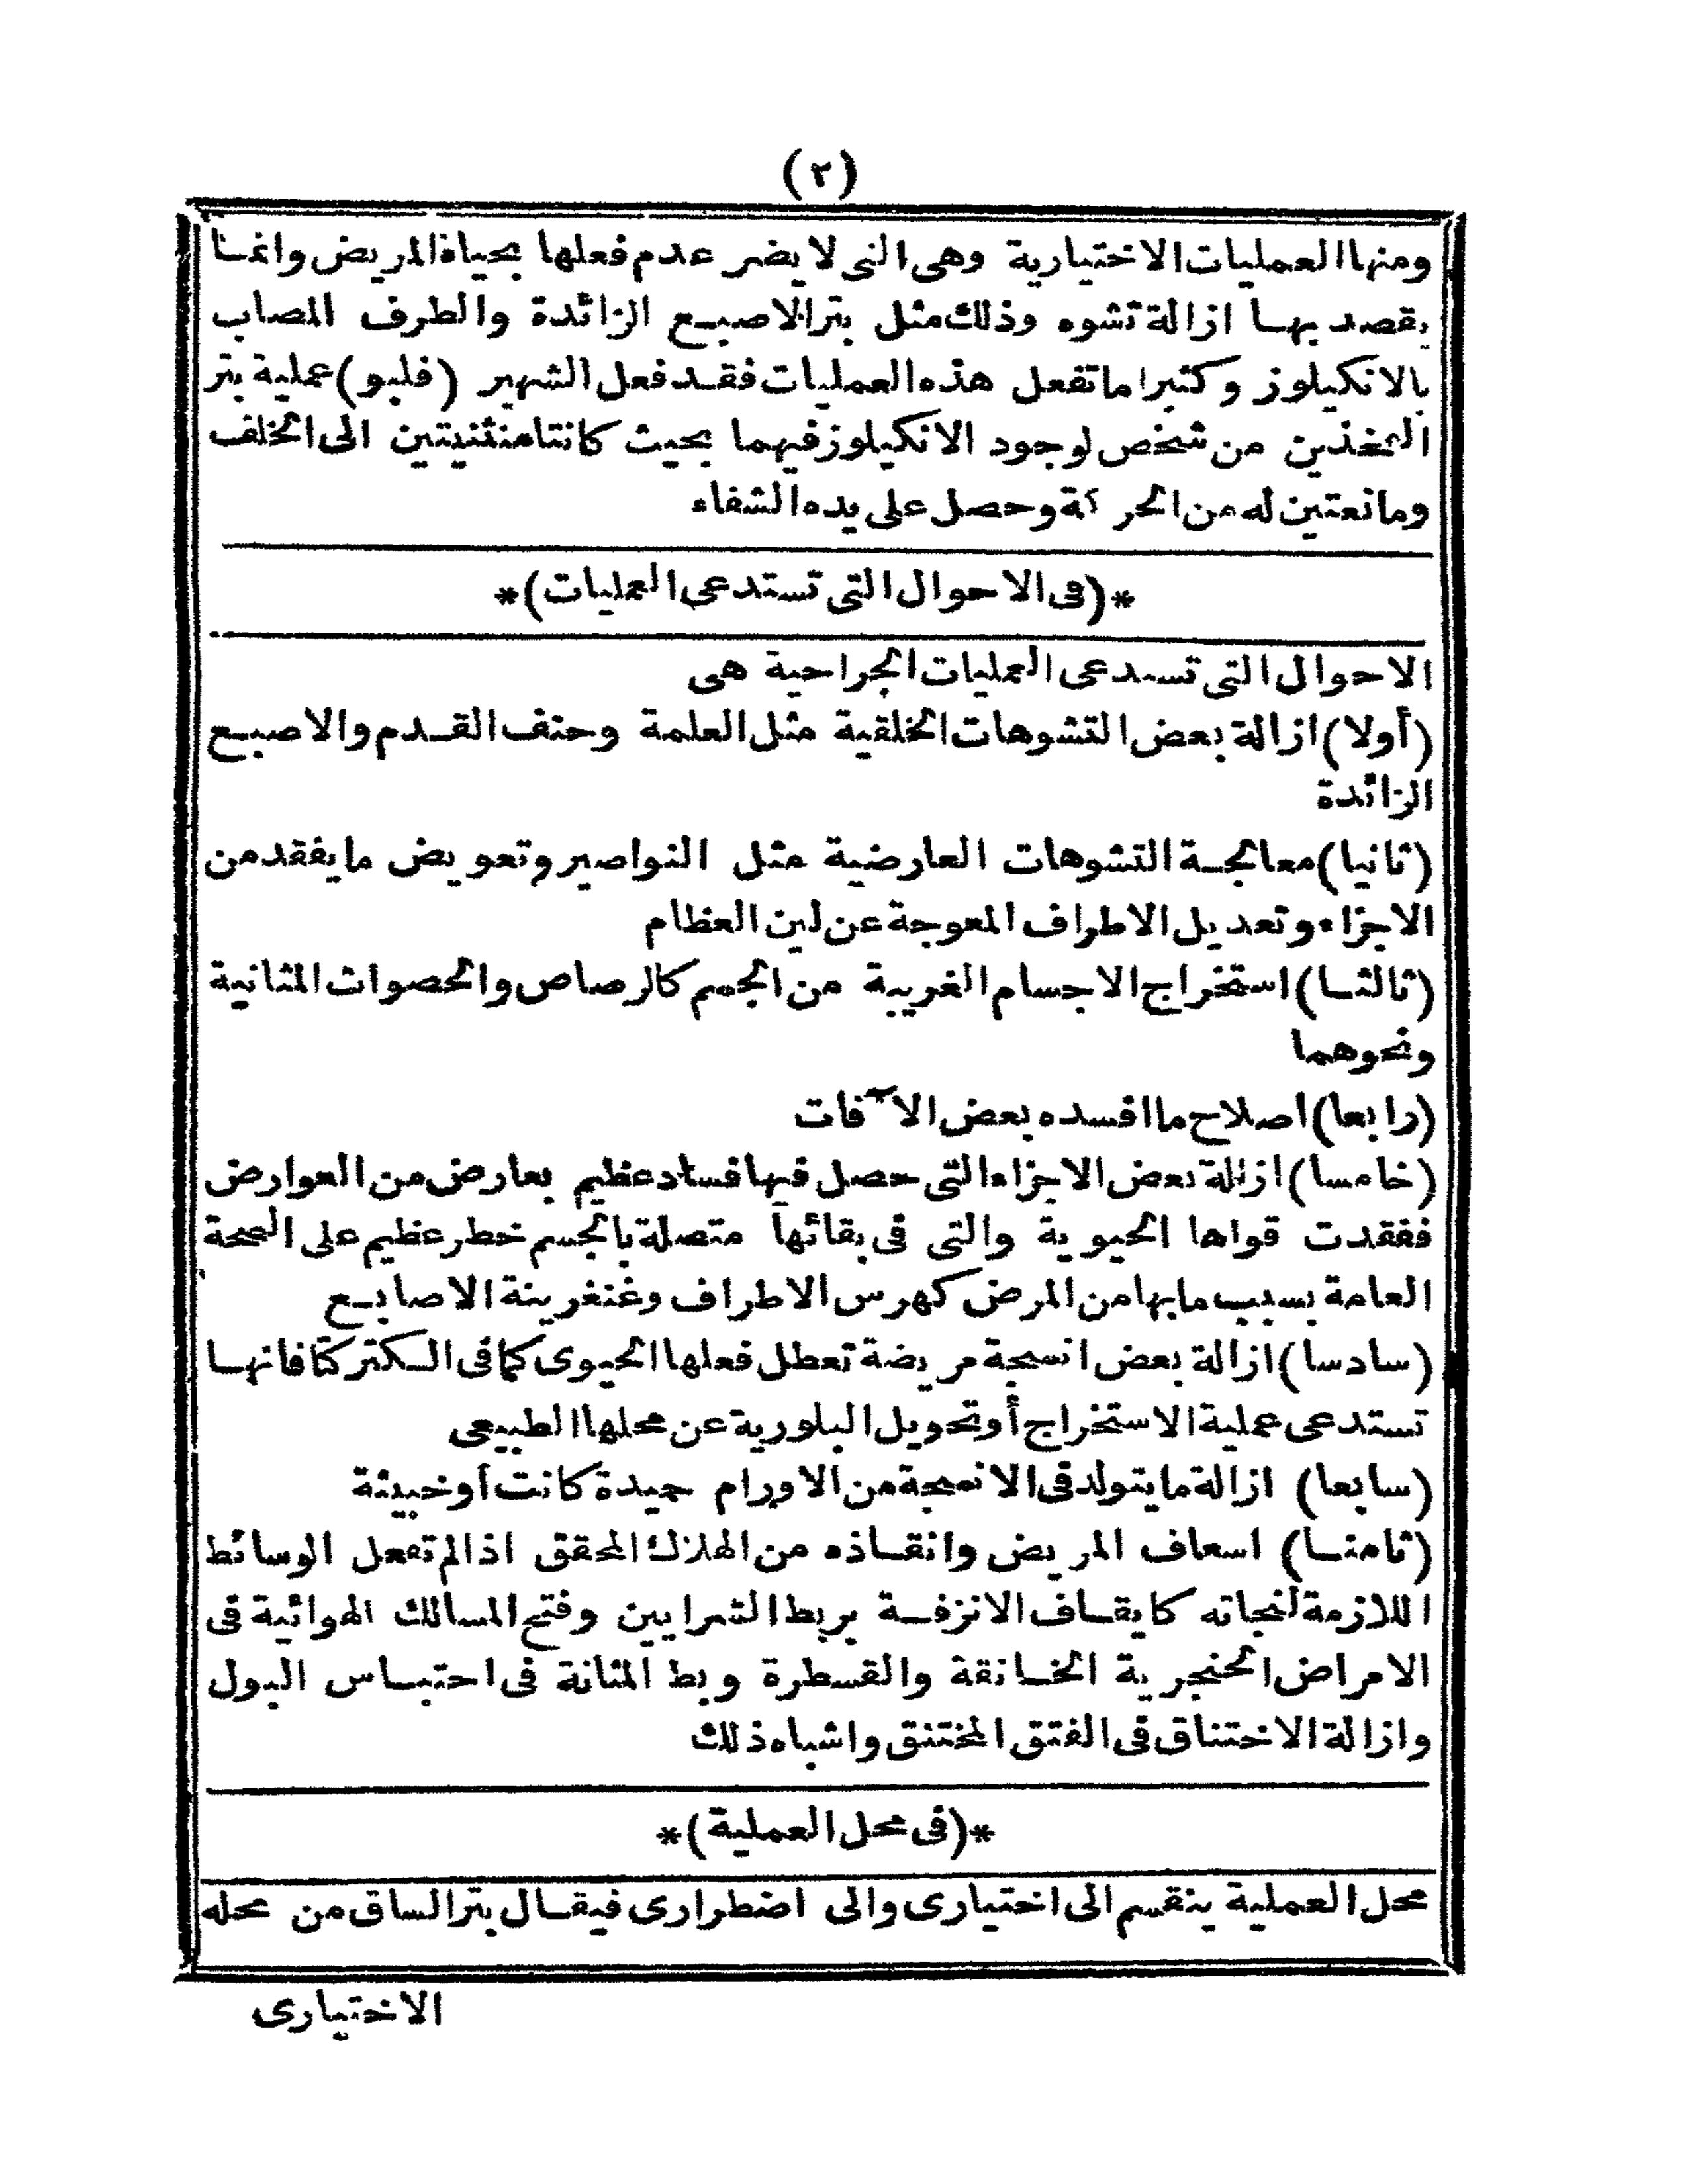 (٢)
ومنها العمليات الاختيارية وهى التى لا يضر عدم فعلها بحياة المريض وانما
يقصد بها ازالة تشوه وذلك مثل بتر الاصبع الزائدة والطرف المصاب
بالانكيلوز وكثيرا ما تفعل هذه العمليات فقد فعل الشهير (فلبو) عملية بتر
الفخذين من شخص لوجود الانكيلوز فيهما بحيث كانتا منثنيتين الى الخلف
ومانعتين له من الحركة وحصل على يده الشفاء
*(فى الاحوال التى تستدعى العمليات)*
الاحوال التى تستدعى العمليات الجراحية هى
(أولا) ازالة بعض التشوهات الخلقية مثل العلمة وحنف القدم والاصبع
الزائدة
(ثانيا) معالجة التشوهات العارضية مثل النواصير وتعويض ما يفقد من
الاجزاء وتعديل الاطراف المعوجة عن لين العظام
(ثالثا) استخراج الاجسام الغريبة من الجسم كالرصاص والحصوات المثانية
ونحوهما
(رابعا) اصلاح ما افسده بعض الآفات
(خامسا) ازالة بعض الاجزاء التى حصل فيها فساد عظيم بعارض من العوارض
ففقدت قواها الحيوية والتى فى بقائها متصلة بالجسم خطر عظيم على الصحة
العامة بسبب ما بها من المرض كهرس الاطراف وغنغرينة الاصابع
(سادسا) ازالة بعض انسجة مريضة تعطل فعلها الحيوى كما فى الكتركتا فانها
تستدعى عملية الاستخراج أو تحويل البلورية عن محلها الطبيعى
(سابعا) ازالة ما يتولد فى الانسجة من الاورام حميدة كانت أو خبيثة
(ثامنا) اسعاف المريض وانقاذه من الهلاك المحقق اذا لم تفعل الوسائط
اللازمة لنجاته كايقاف الانزفة بربط الشرايين وفتح المسالك الهوائية فى
الامراض الحنجرية الخانقة والقسطرة وبط المثانة فى احتباس البول
وازالة الاختناق فى الفتق المختنق واشباه ذلك
*(فى محل العملية)*
محل العملية ينقسم الى اختيارى والى اضطرارى فيقال بتر الساق من محله
الاختيارى